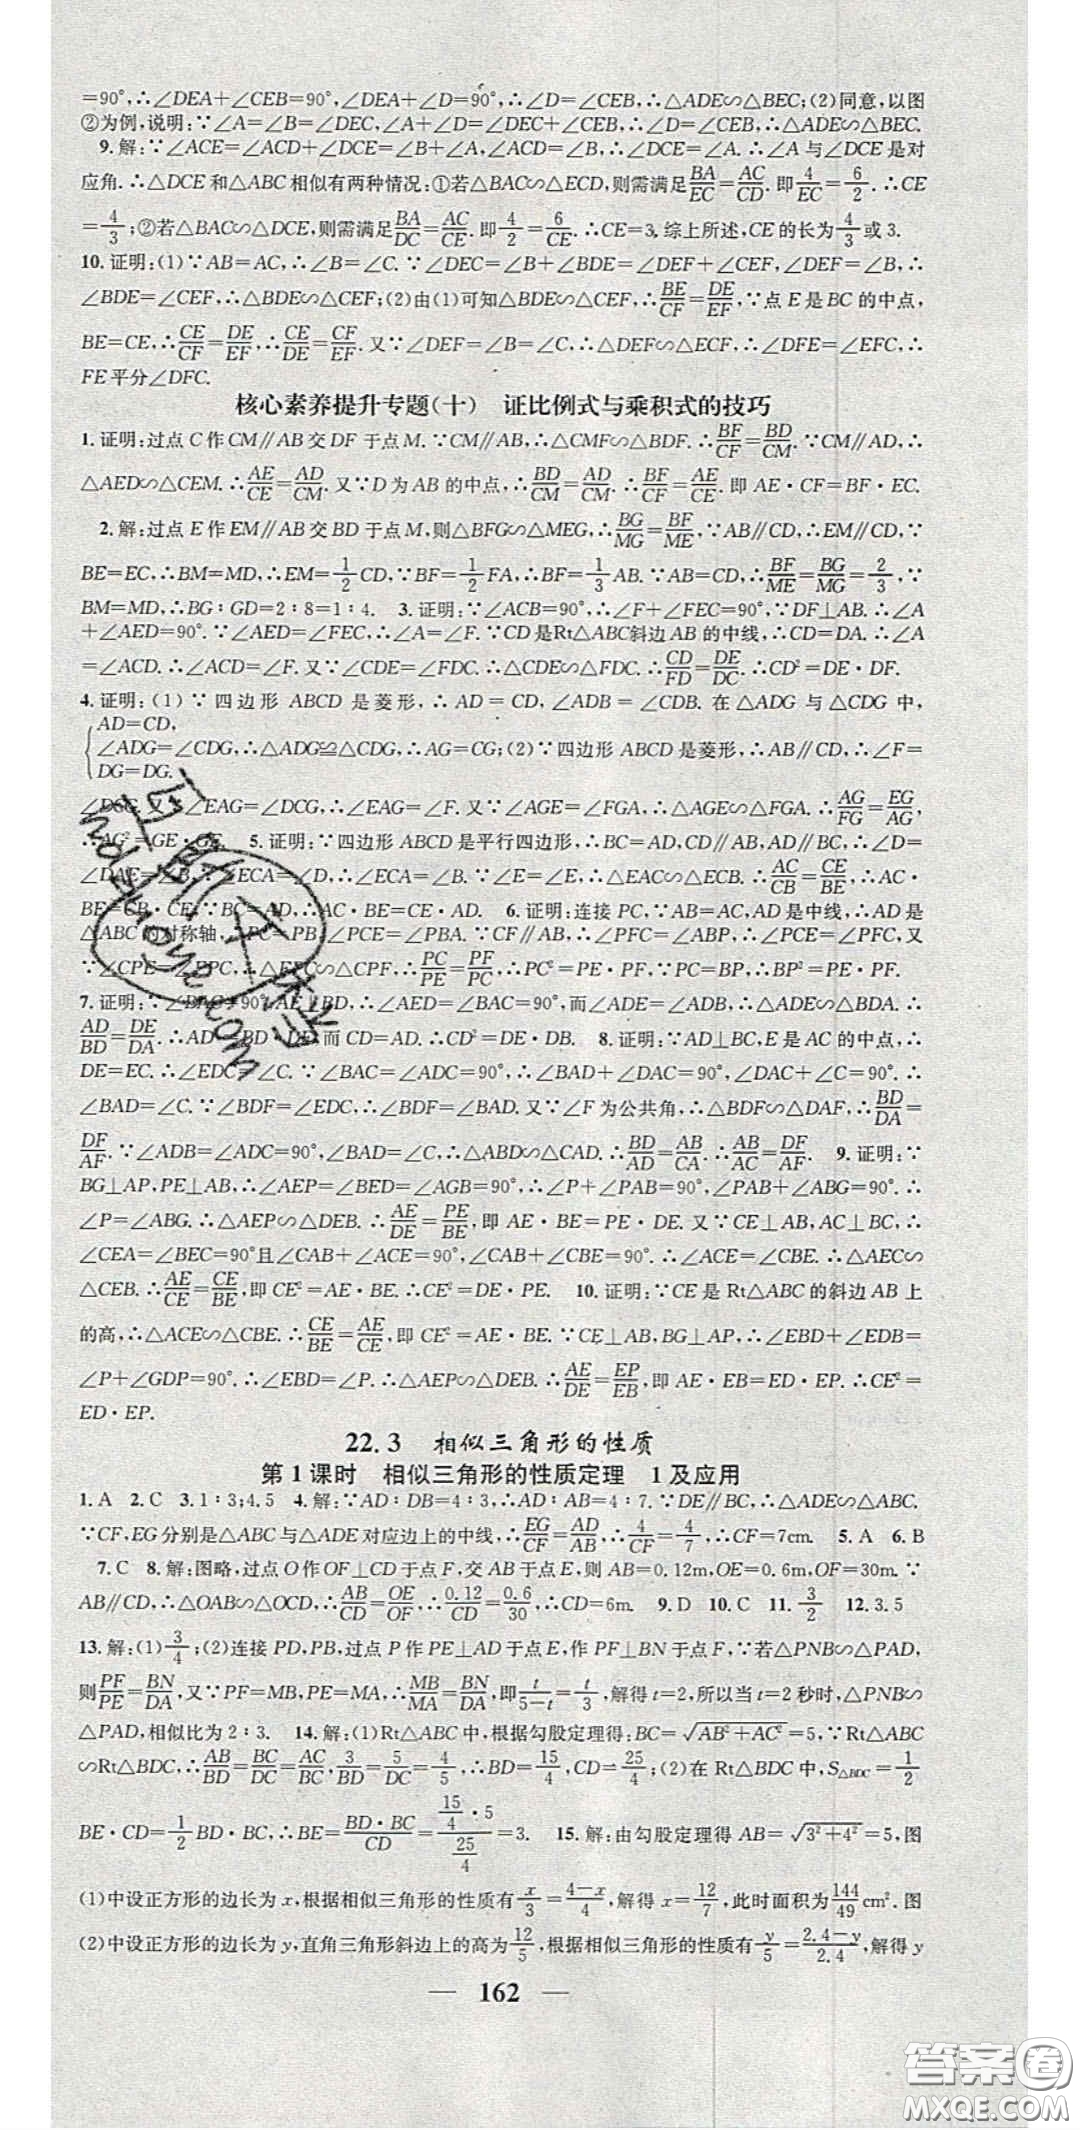 =90°,∴∠DEA+∠CEB=90°,∠DEA+∠D=90°,∴∠D=∠CEB,∴△ADE∽△BEC;(2)同意,以图
②为例,说明:∵∠A=∠B=∠DEC,∠A+∠D=∠DEC+∠CEB,∴∠D=∠CEB,∴△ADE∽△BEC.
9.解:∵∠ACE=∠ACD+∠DCE=∠B+∠A,∠ACD=∠B,∴∠DCE=∠A.∴∠A与∠DCE是对
应角.∴△DCE和△ABC相似有两种情况:①若△BAC∽△ECD,则需满足BA/EC=AC/CD.即4/EC=6/2.∴CE
=4/3;②若△BAC∽△DCE,则需满足BA/DC=AC/CE.即4/2=6/CE.∴CE=3.综上所述,CE的长为4/3或3.
10.证明:(1)∵AB=AC,∴∠B=∠C.∵∠DEC=∠B+∠BDE=∠DEF+∠CEF,∠DEF=∠B,∴
∠BDE=∠CEF,∴△BDE∽△CEF;(2)由(1)可知△BDE∽△CEF,∴BE/CF=DE/EF,∵点E是BC的中点,
BE=CE,∴CE/CF=DE/EF,∴CE/DE=CF/EF.又∵∠DEF=∠B=∠C,∴△DEF∽△ECF,∴∠DFE=∠EFC,∴
FE平分∠DFC.
核心素养提升专题(十) 证比例式与乘积式的技巧
1.证明:过点C作CM∥AB交DF于点M.∵CM∥AB,∴△CMF∽△BDF.∴BF/CF=BD/CM.∵CM∥AD,∴
△AED∽△CEM.∴AE/CE=AD/CM.又∵D为AB的中点,∴BD/CM=AD/CM.∴BF/CF=AE/CE.即AE·CF=BF·EC.
2.解:过点E作EM∥AB交BD于点M,则△BFG∽△MEG,∴BG/MG=BF/ME,∵AB∥CD,∴EM∥CD,∵
BE=EC,∴BM=MD,∴EM=1/2CD,∵BF=1/2FA,∴BF=1/3AB.∵AB=CD,∴BF/ME=BG/MG=2/3,∵
BM=MD,∴BG∶GD=2∶8=1∶4. 3.证明:∵∠ACB=90°,∴∠F+∠FEC=90°,∵DF⊥AB.∴∠A
+∠AED=90°.∵∠AED=∠FEC,∴∠A=∠F.∵CD是Rt△ABC斜边AB的中线,∴CD=DA.∴∠A
=∠ACD.∴∠ACD=∠F.又∵∠CDE=∠FDC.∴△CDE∽△FDC.∴CD/FD=DE/DC.∴CD²=DE·DF.
4.证明:(1)∵四边形ABCD是菱形,∴AD=CD,∠ADB=∠CDB.在△ADG与△CDG中,
AD=CD,
∠ADG=∠CDG,∴△ADG≌△CDG,∴AG=CG;(2)∵四边形ABCD是菱形,∴AB∥CD,∴∠F=
DG=DG.
∠EAG=∠DCG,∴∠EAG=∠F.又∵∠AGE=∠FGA,∴△AGE∽△FGA.∴AG/FG=EG/AG,
∴AG²=GE· 5.证明:∵四边形ABCD是平行四边形,∴BC=AD,CD∥AB,AD∥BC,∴∠D=
∠DAE=∠B,∵∠ECA=∠D,∴∠ECA=∠B.∵∠E=∠E,∴△ECA∽△ECB.∴AC/CB=CE/BE,∴AC·
BE=CB·CE.∵BC=AD,∴AC·BE=CE·AD. 6.证明:连接PC,∵AB=AC,AD是中线,∴AD是
△ABC的对称轴,∴PC=PB,∠PCE=∠PBA.∵CF∥AB,∴∠PFC=∠ABP,∴∠PCE=∠PFC,又
∵∠CPE=∠EPC,∴△EPC∽△CPF,∴PC/PE=PF/PC,∴PC²=PE·PF,∵PC=BP,∴BP²=PE·PF.
7.证明:∵∠BAC=90°,AE⊥BD,∴∠AED=∠BAC=90°,而∠ADE=∠ADB,∴△ADE∽△BDA.∴
AD/BD=DE/DA.∴AD²=BD·DE,而CD=AD.∴CD²=DE·DB. 8.证明:∵AD⊥BC,E是AC的中点,∴
DE=EC.∴∠EDC=∠C.∵∠BAC=∠ADC=90°,∴∠BAD+∠DAC=90°,∠DAC+∠C=90°.∴
∠BAD=∠C.∵∠BDF=∠EDC,∴∠BDF=∠BAD.又∵∠F为公共角,∴△BDF∽△DAF,∴BD/DA=
DF/AF.∵∠ADB=∠ADC=90°,∠BAD=∠C,∴△ABD∽△CAD.∴BD/AD=AB/CA.∴AB/AC=DF/AF. 9.证明:∵
BG⊥AP,PE⊥AB,∴∠AEP=∠BED=∠AGB=90°,∴∠P+∠PAB=90°,∠PAB+∠ABG=90°.∴
∠P=∠ABG.∴△AEP∽△DEB.∴AE/DE=PE/BE,即AE·BE=PE·DE.又∵CE⊥AB,AC⊥BC,∴
∠CEA=∠BEC=90°且∠CAB+∠ACE=90°,∠CAB+∠CBE=90°.∴∠ACE=∠CBE.∴△AEC∽
△CEB.∴AE/CE=CE/BE,即CE²=AE·BE,∴CE²=DE·PE. 10.证明:∵CE是Rt△ABC的斜边AB上
的高,∴△ACE∽△CBE.∴CE/BE=AE/CE,即CE²=AE·BE.∵CE⊥AB,BG⊥AP,∴∠EBD+∠EDB=
∠P+∠GDP=90°.∴∠EBD=∠P.∴△AEP∽△DEB.∴AE/DE=EP/EB,即AE·EB=ED·EP.∴CE²=
ED·EP.
22.3 相似三角形的性质
第1课时 相似三角形的性质定理 1及应用
1.A 2.C 3.1∶3;4.5 4.解:∵AD∶DB=4∶3,∴AD∶AB=4∶7.∵DE∥BC,∴△ADE∽△ABC.
∵CF,EG分别是△ABC与△ADE对应边上的中线,∴EG/CF=AD/AB,∴4/CF=4/7,∴CF=7cm. 5.A 6.B
7.C 8.解:图略,过点O作OF⊥CD于点F,交AB于点E,则AB=0.12m,OE=0.6m,OF=30m.∵
AB∥CD,∴△OAB∽△OCD,∴AB/CD=OE/OF,∴0.12/CD=0.6/30,∴CD=6m. 9.D 10.C 11.3/2 12.3.5
13.解:(1)3/4;(2)连接PD,PB,过点P作PE⊥AD于点E,作PF⊥BN于点F,∵若△PNB∽△PAD,
则PF/PE=BN/DA,又∵PF=MB,PE=MA,∴MB/MA=BN/DA,即t/5-t=t/3,解得t=2,所以当t=2秒时,△PNB∽
△PAD,相似比为2∶3. 14.解:(1)Rt△ABC中,根据勾股定理得:BC=√AB²+AC²=5,∵Rt△ABC
∽Rt△BDC,∴AB/BD=BC/DC=AC/BC,3/BD=5/DC=4/5,∴BD=15/4,CD=25/4;(2)在Rt△BDC中,S△BDC=1/2
BE·CD=1/2BD·BC,∴BE=BD·BC/CD=(15/4·5)/(25/4)=3. 15.解:由勾股定理得AB=√3²+4²=5,图
(1)中设正方形的边长为x,根据相似三角形的性质有x/3=4-x/4,解得x=12/7,此时面积为144/49cm².图
(2)中设正方形的边长为y,直角三角形斜边上的高为12/5,根据相似三角形的性质有y/5=2.4-y/2.4,解得y
— 162 —
答案圈
MXQE.COM